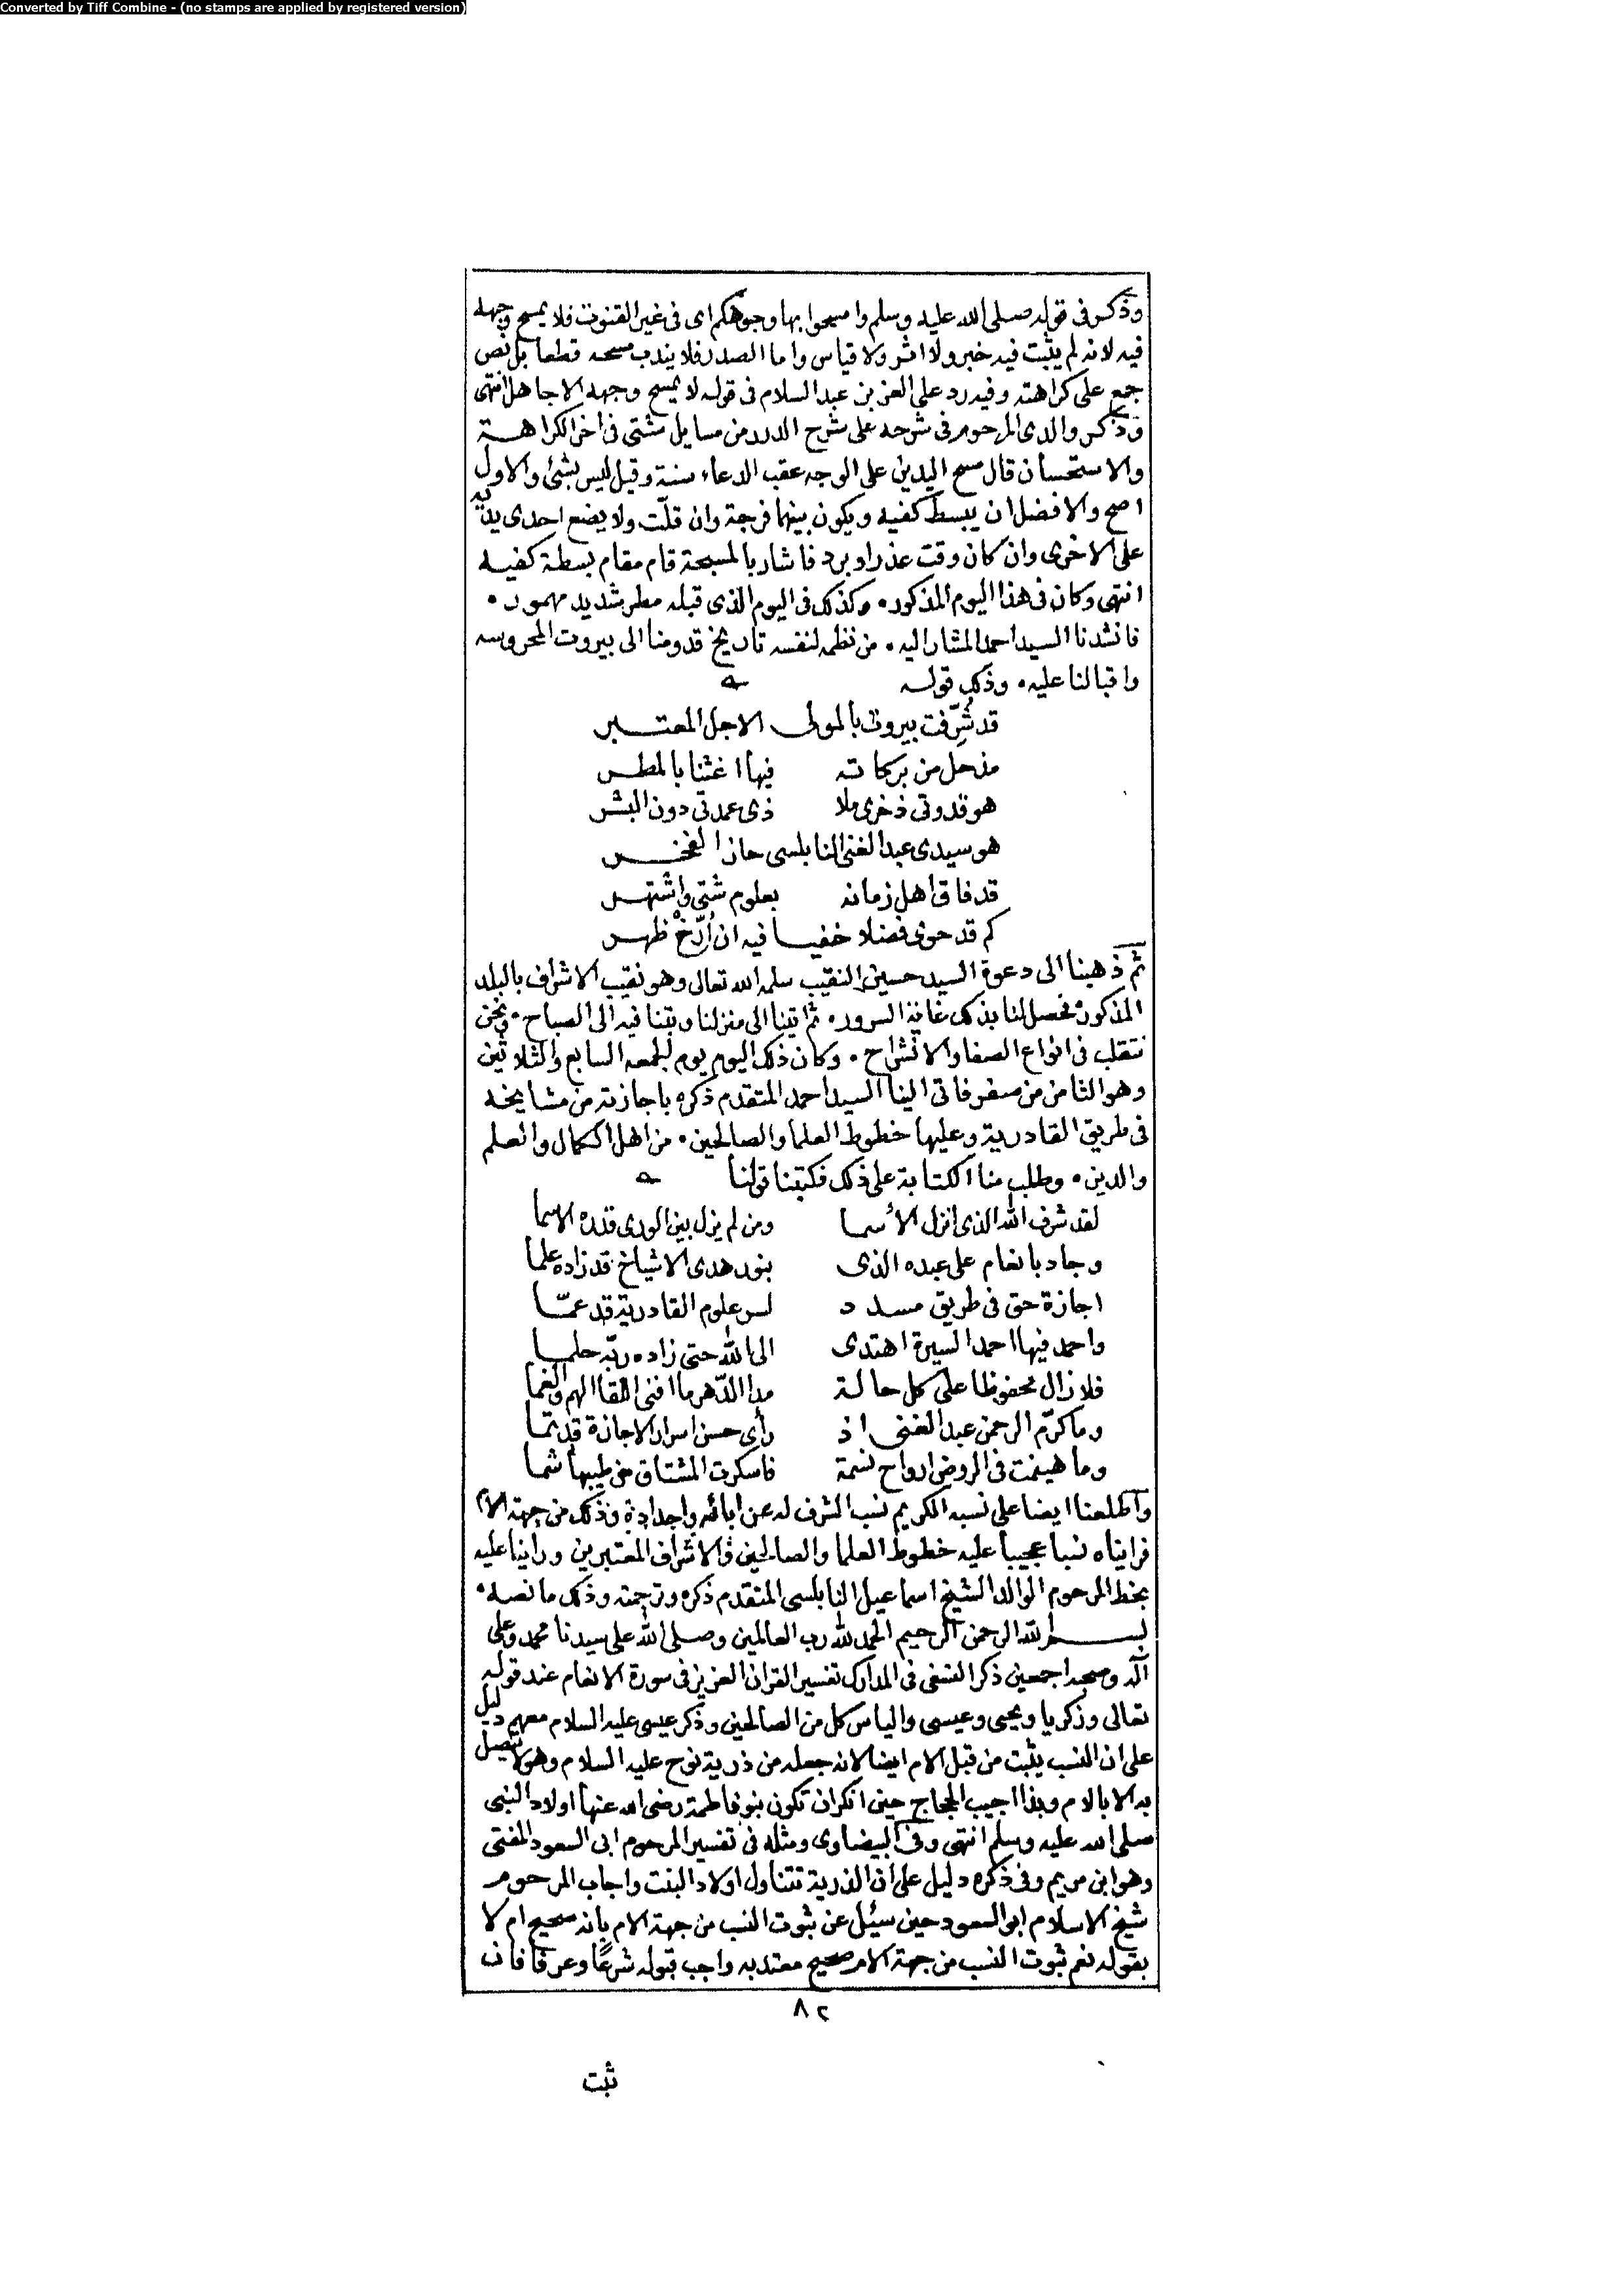 Converted by Tiff Combine - (no stamps are applied by registered version)
وذكر فى قوله صلى الله عليه وسلم وامسحوا بها وجوهكم اى فى غير القنوت فلا يمسح وجهه
فيه لانه لم يثبت فيه خبر ولا اثر ولا قياس واما الصدر فلا يندب مسحه قطعا بل نص
جمع على كراهته وفيه رد على العز بن عبد السلام فى قوله لا يمسح وجهه الا جاهل انتهى
وذكر والدى المرحوم فى شرحه على شرح الدرر من مسايل شتى فى اخر الكراهــة
والاستحسان قال مسح اليدين على الوجه عقب الدعاء سنة وقيل ليس بشئ والاول
اصح والافضل ان يبسط كفيه ويكون بينهما فرجة وان قلّت ولا يضع احدى يديه
على الاخرى وان كان وقت عذر او برد فاشار بالمسبحة قام مقام بسطة كفيه
انتهى وكان فى هذا اليوم المذكور٠ وكذلك فى اليوم الذى قبله مطر شديد مهمور ٠
فانشدنا السيد احمد المشار اليه ٠ من نظمه لنفسه تاريخ قدومنا الى بيروت المحروسه
واقبالنا عليه ٠ وذلك قوله
قد شُرِّفت بيروت بالمولى الاجل المعتبر
مذ حل من بركاته فيها اغثنا بالمطر
هو قدوتى ذخرى ملا ذى عمدتى دون البشر
هو سيدى عبد الغنى النابلسى حاز الفخر
قد فاق اهل زمانه بعلوم شتى واشتهر
كم قد حوى فضلا خفيا فيه ان اُرّخْ ظهر
ثم ذهبنا الى دعوة السيد حسين النقيب سلمه الله تعالى وهو نقيب الاشراف بالبلد
المذكور فحصل لنا بذلك غاية السرور٠ ثم اتينا الى منزلنا وبتنا فيه الى الصباح ٠ ونحن
نتقلب فى انواع الصفا والانشراح ٠ وكان ذلك اليوم يوم الجمعه السابع والثلاثين
وهو الثامن من صفر فاتى الينا السيد احمد المتقدم ذكره باجازته من مشايخه
فى طريق القادرية وعليها خطوط العلما والصالحين ٠ من اهل الكمال والعلم
والدين ٠ وطلب منا الكتابة على ذلك فكتبنا قولنا
لقد شرف الله الذى انزل الأسما ومن لم يزل بين الورى قدره الاسما
وجاد بانعام على عبده الذى بنور هدى الاشياخ قد زاده علما
اجازة حق فى طريق مسدد لسر علوم القادرية قد عمّا
واحمد فيها احمد السيرة اهتدى الى الله حتى زاده ربّه حلما
فلا زال محفوظا على كل حالة مدا الدّهر ما افنى اللقا الهم والغما
وما كرّم الرحمن عبد الغنى اذ رأى حسن اسرار الاجازة قد تمّا
وما هيمنت فى الروض ارواح نسمة فاسكرت المشتاق من طيبها شما
واطلعنا ايضا على نسبه الكريم نسب الشرف له عن ابائه واجداده وذلك من جهة الام
فراينا نسبا عجيبا عليه خطوط العلما والصالحين والاشراف المعتبرين وراينا عليه
بخط المرحوم الوالد الشيخ اسماعيل النابلسى المتقدم ذكره وترجمته وذلك ما نصه ٠
بسم الله الرحمن الرحيم الحمد لله رب العالمين وصلى الله على سيدنا محمد وعلى
آله وصحبه اجمعين ذكر النسفى فى المدارك تفسير القران العزيز فى سورة الانعام عند قوله
تعالى وزكريا ويحيى وعيسى والياس كل من الصالحين وذكر عيسى عليه السلام معهم دليل
على ان النسب يثبت من قبل الام ايضا لانه جعله من ذرية نوح عليه السلام وهو لا يتصل
به الا بالام وبذا اجيب الحجاج حين انكر ان تكون بنو فاطمة رضى الله عنها اولاد النبى
صلى الله عليه وسلم انتهى وفى البيضاوى ومثله فى تفسير المرحوم ابى السعود المفتى
وهو ابن مريم وفى ذكره دليل على ان الذرية تتناول اولاد البنت واجاب المرحوم
شيخ الاسلام ابى السعود حين سئل عن ثبوت النسب من جهة الام بانه صحيح ام لا
بقوله نعم ثبوت النسب من جهة الام صحيح معتد به واجب قبوله شرعًا وعرفا فان
٨٢
ثبت